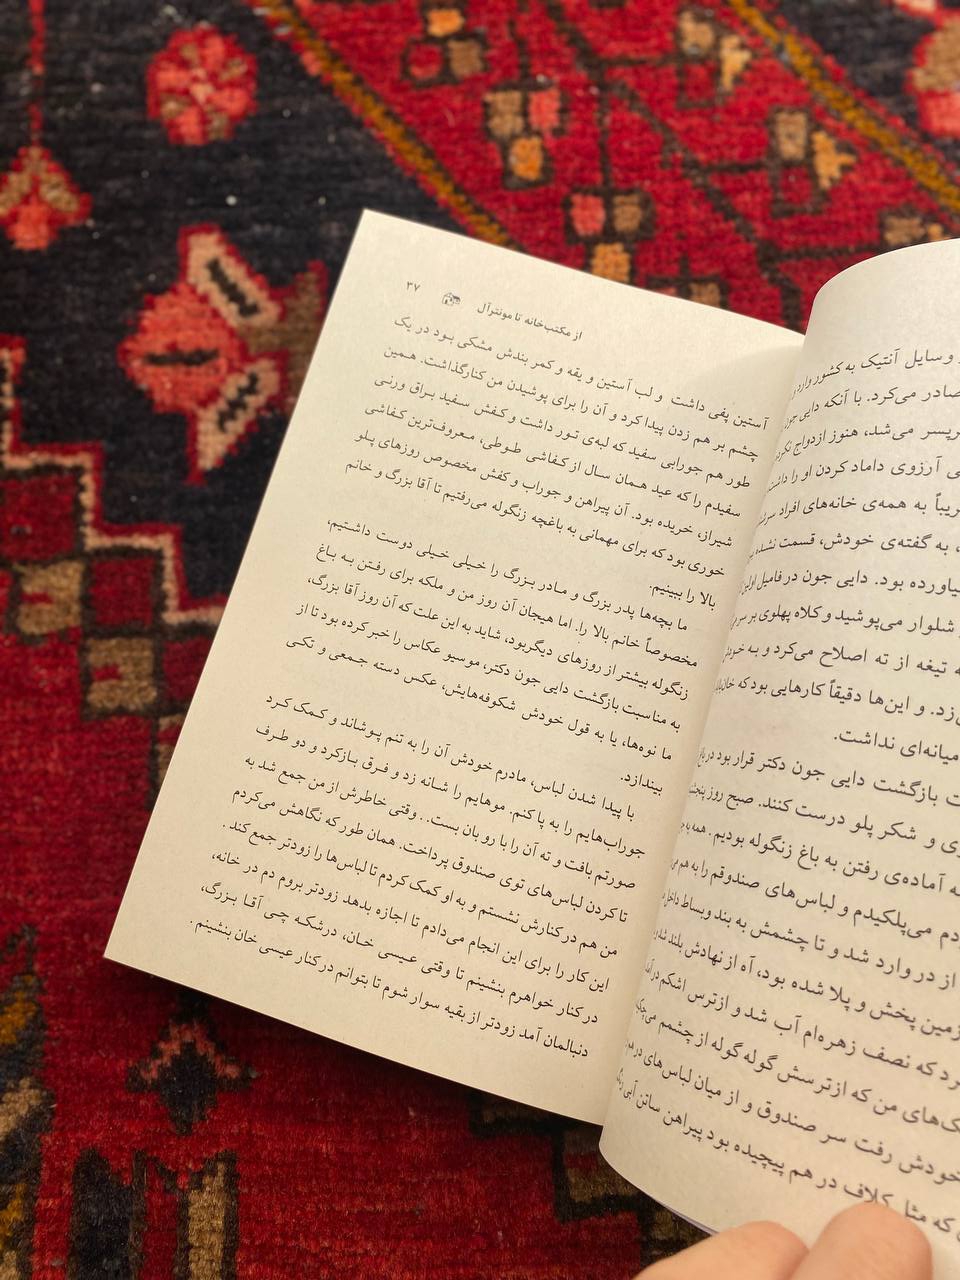 و وسایل آنتیک به کشور وارد و
صادر می‌کرد. با آنکه دایی جون
پرپسر می‌شد، هنوز ازدواج نکرده
آرزوی داماد کردن او را داشت
تقریباً به همه‌ی خانه‌های افراد
به گفته‌ی خودش، قسمت نشده
نیاورده بود. دایی جون در فامیل اولین
شلوار می‌پوشید و کلاه پهلوی بر سر
تیغه از ته اصلاح می‌کرد و به خودش
می‌زد. و این‌ها دقیقاً کارهایی بود که
میانه‌ای نداشت.
بازگشت دایی جون دکتر قرار بود در باغ
و شکر پلو درست کنند. صبح روز
آماده‌ی رفتن به باغ زنگوله بودیم. همه
می‌پلکیدم و لباس‌های صندوقم را به هم
از در وارد شد و تا چشمش به بند و بساط داخل
زمین پخش و پلا شده بود، آه از نهادش بلند شد
کرد که نصف زهره‌ام آب شد و از ترس اشکم در آمد
اشک‌های من که از ترسش گوله گوله از چشمم
خودش رفت سر صندوق و از میان لباس‌های در هم
که مثل کلاف در هم پیچیده بود پیراهن ساتن آبی
از مکتب‌خانه تا مونترآل ۳۷
آستین پفی داشت و لب آستین و یقه و کمر بندش مشکی بود در یک
چشم بر هم زدن پیدا کرد و آن را برای پوشیدن من کنار گذاشت. همین
طور هم جورابی سفید که لبه‌ی تور داشت و کفش سفید براق ورنی
سفیدم را که عید همان سال از کفاشی طوطی، معروف‌ترین کفاشی
شیراز، خریده بود. آن پیراهن و جوراب و کفش مخصوص روزهای پلو
خوری بود که برای مهمانی به باغچه زنگوله می‌رفتیم تا آقا بزرگ و خانم
بالا را ببینیم.
ما بچه‌ها پدر بزرگ و مادر بزرگ را خیلی خیلی دوست داشتیم،
مخصوصاً خانم بالا را. اما هیجان آن روز من و ملکه برای رفتن به باغ
زنگوله بیشتر از روزهای دیگر بود، شاید به این علت که آن روز آقا بزرگ،
به مناسبت بازگشت دایی جون دکتر، موسیو عکاس را خبر کرده بود تا از
ما نوه‌ها، یا به قول خودش شکوفه‌هایش، عکس دسته جمعی و تکی
بیندازد.
با پیدا شدن لباس، مادرم خودش آن را به تنم پوشاند و کمک کرد
جوراب‌هایم را به پا کنم. موهایم را شانه زد و فرق باز کرد و دو طرف
صورتم بافت و ته آن را با روبان بست. . وقتی خاطرش از من جمع شد به
تا کردن لباس‌های توی صندوق پرداخت. همان طور که نگاهش می‌کردم
من هم در کنارش نشستم و به او کمک کردم تا لباس‌ها را زودتر جمع کند .
این کار را برای این انجام می‌دادم تا اجازه بدهد زودتر بروم دم در خانه،
در کنار خواهرم بنشینم تا وقتی عیسی خان، درشکه چی آقا بزرگ،
دنبالمان آمد زودتر از بقیه سوار شوم تا بتوانم در کنار عیسی خان بنشینم .